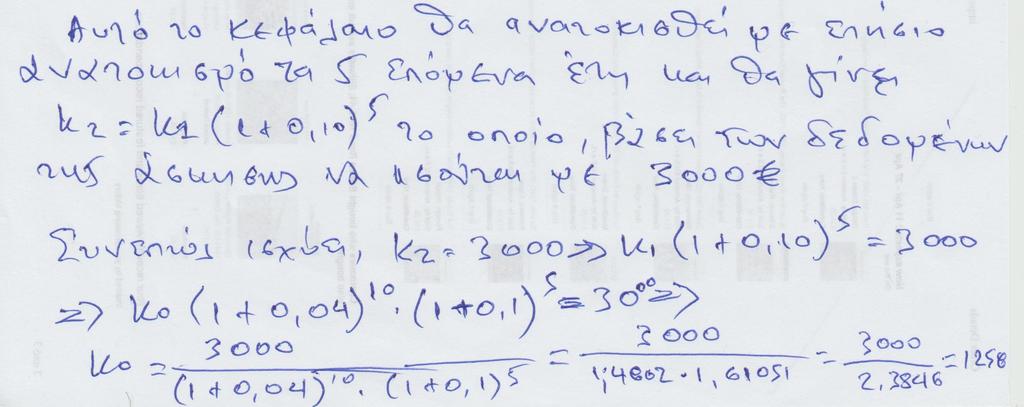 Αυτό το κεφάλαιο θα ανατοκισθεί με ετήσιο
ανατοκισμό τα 5 επόμενα έτη και θα γίνει
K₂ = K₁ (1+0,10)⁵ το οποίο, βάσει των δεδομένων
της άσκησης να ισούται με 3000€
Συνεπώς ισχύει, K₂ = 3000 => K₁ (1+0,10)⁵ = 3000
=> K₀ (1+0,04)¹⁰ . (1+0,1)⁵ = 3000 =>
K₀ = 3000 / (1+0,04)¹⁰ . (1+0,1)⁵ = 3000 / 1,4802 . 1,61051 = 3000 / 2,3846 = 1258